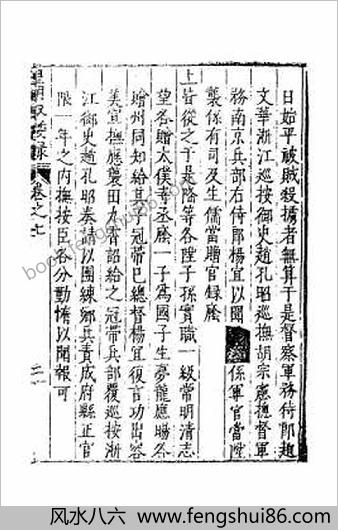 日始平破賊殺擄者無算于是督察軍務侍郎趙
文華浙江巡按御史趙孔昭巡撫胡宗憲總督軍
務南京兵部右侍郎楊宜以聞 係軍官當陞
襲係有司及生儒當贈官錄廕
上皆從之于是隆等各陞子孫實職一級常明清志
望各贈太僕寺丞廕一子為國子生夢龍應暘各
贈州同知給 冠帶已總督楊宜復言功出容
美宣撫應襲田九霄詔給之冠帶兵部覆巡按浙
江御史趙孔昭奏請以團練鄉兵責成府縣正官
限一年之内撫按臣各分勤惰以聞報可
皇明馭倭錄 卷之七
二十
book.fengshui86.com
风水八六 www.fengshui86.com